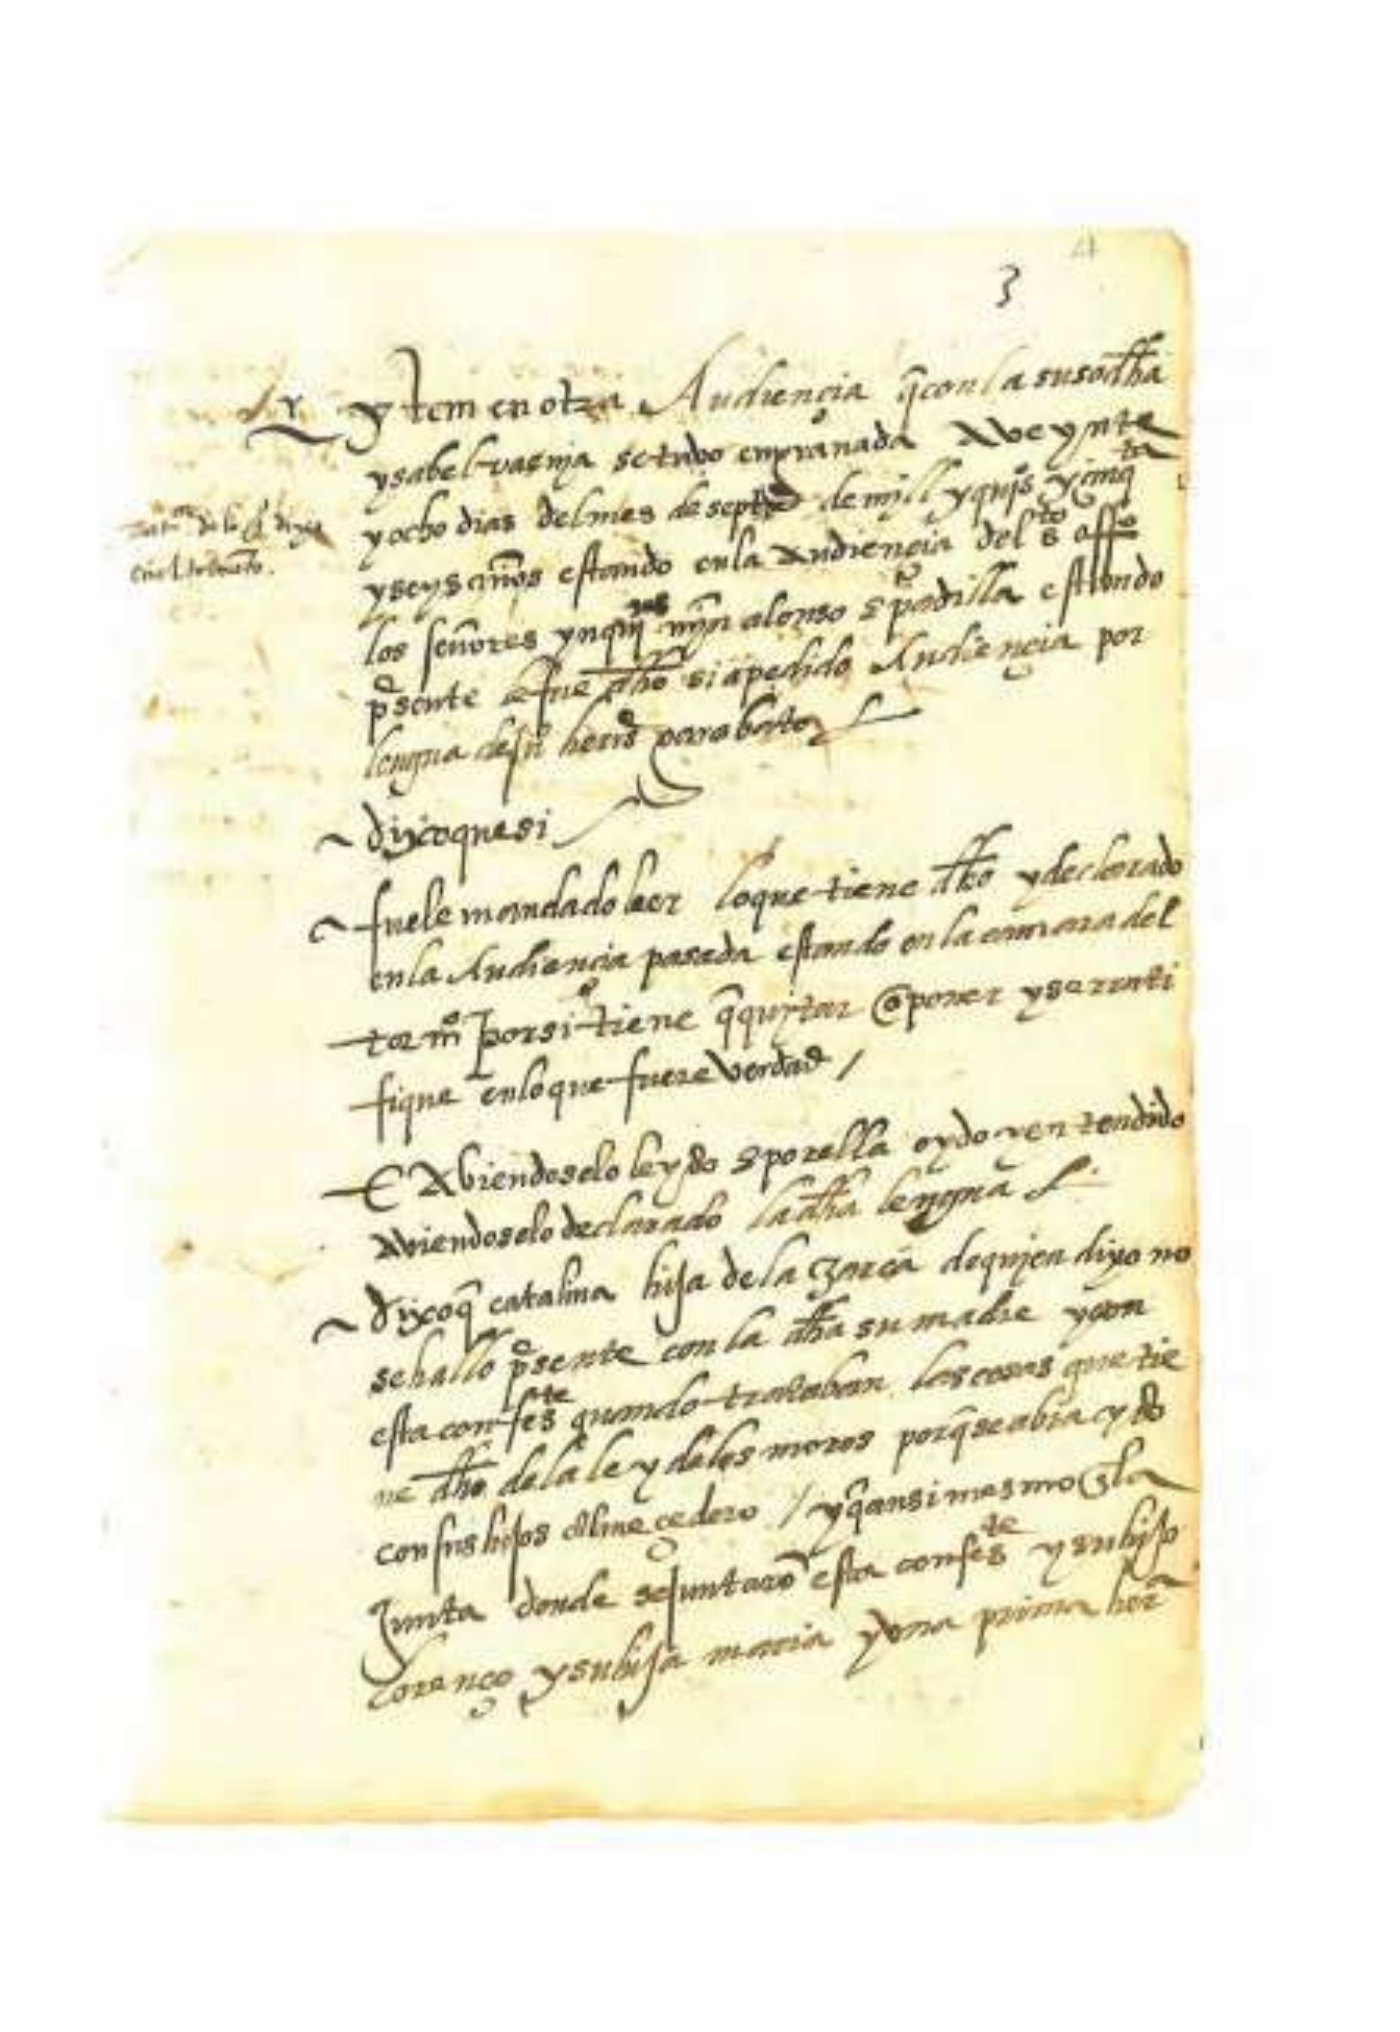 4
3
ytem en otra Audiençia q̃ con la susodh̃a
ysabel vasnja se tubo en granada A veynte
y ocho dias del mes de septe de mjll y qujos y cinqta
y seys años estando en la audiençia del sto offo
los señores ynqujres mŷn alonso e padilla estando
presente le fue dh̃o si a pedido Audiençia por
lengua de
~ dixo que si
~ fuele mandado leer lo que tiene dh̃o y declarado
en la Audiençia pasada estando en la camara del
tormo por si tiene q̃ qujtar o poner y se rrati
fique en lo que fuere verdad /
E Abiendoselo leydo e por ella oydo y entendido
aviendoselo declarado la dh̃a lengua
~ dixo q̃ catalina hija de la zarca de qujen dixo no
se hallo presente con la dh̃a su madre y con
esta confeste quando trataban las cosas que tie
ne dh̃o de la ley de los moros porq̃ se abia ydo
con sus hijos al meçedero / y q̃ ansimesmo en la
Junta donde se juntarõ esta confeste y su hijo
lorenço y su hija maria y vna prima herã
de lo q̃ dixo
en el tormto.